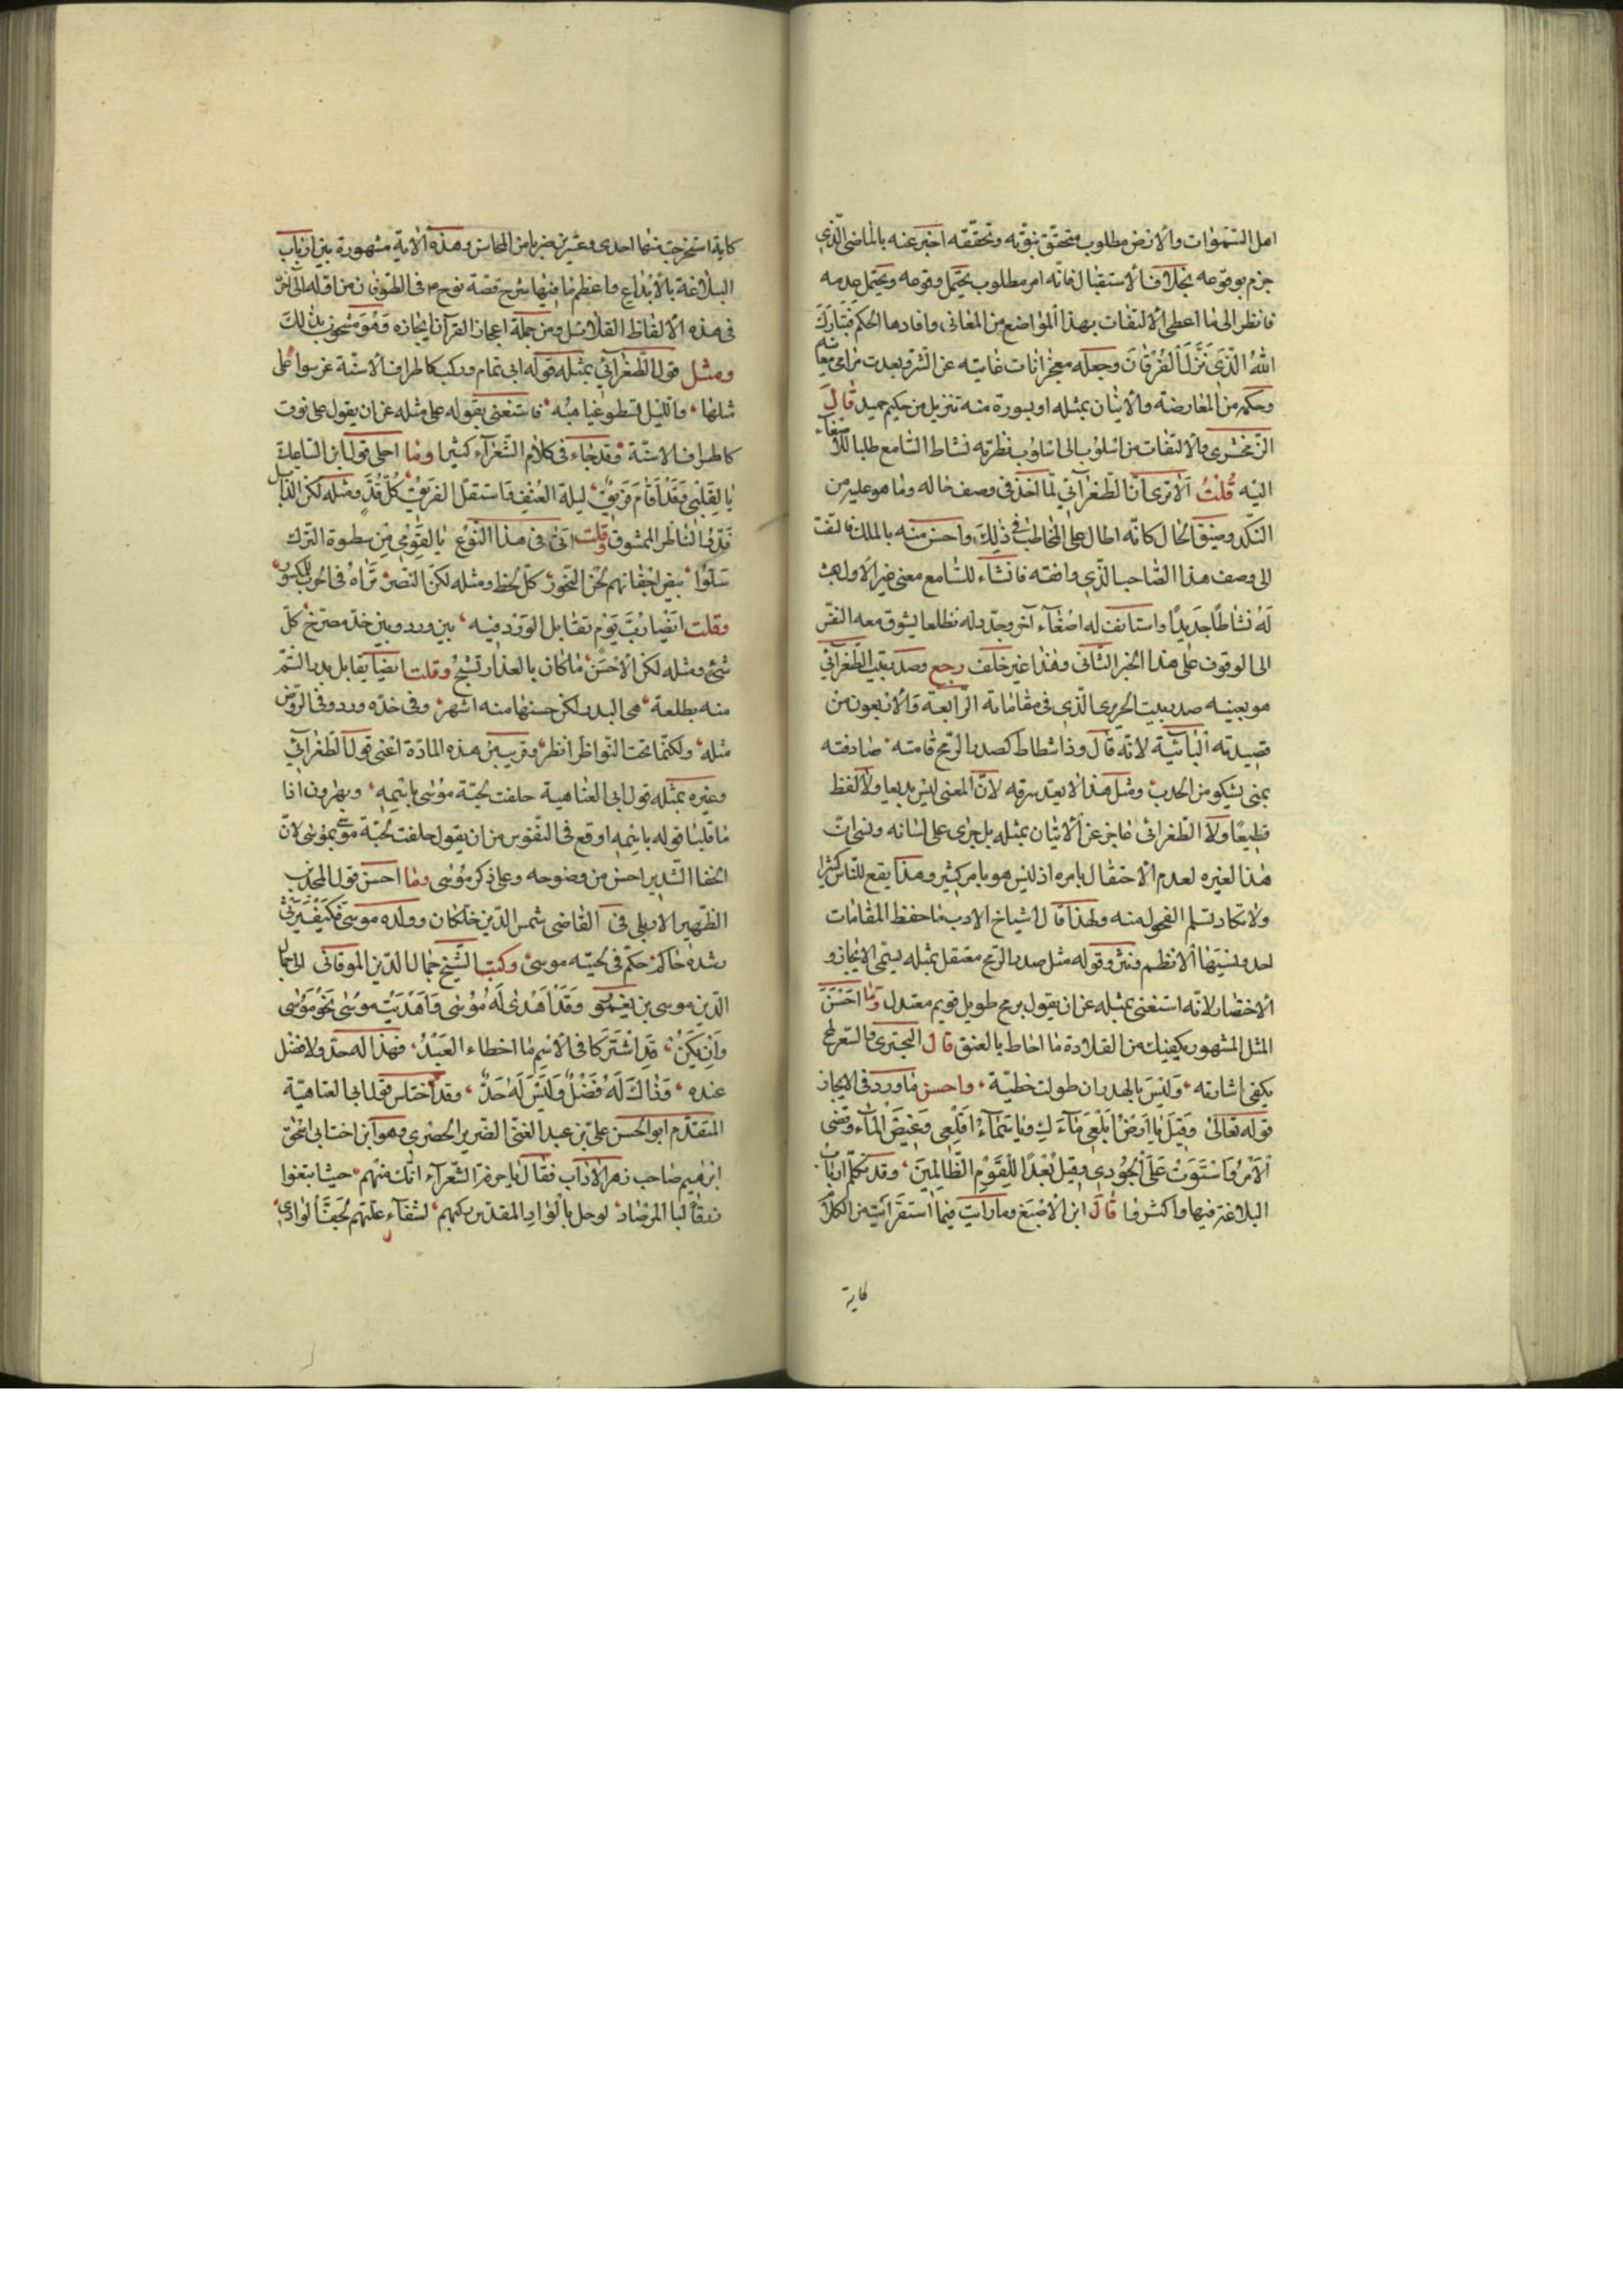 اهل السّمٰوات والارض مطلوب متحقّق بنوّته وتحقّقه اخبر عنه بالماضى الّذى
جزم بوقوعه بخلاف الاستقبال فانّه امر مطلوب يحتمل وقوعه ويحتمل عدمه
فانظر الى ما اعطى الالتفات بهذا المواضع من المعانى وافادها الحكم فتبارك
الله الّذى نزّل الفرقان وجعله معجزا نات غايته عن الشرّ وبعدت مرامى معانيه
وحكم من المعارضة والاتيان بمثله او بسورة منه تنزيل من حكيم حميد قال
الزمخشرى والالتفات من اسلوب الى اسلوب نظرته نشاط السّامع طلبا للاصغاء
اليه قلت الا ترى انّ الطّغرائى لمّا اخذ فى وصف حاله وما هو عليه من
النّكد وضيق الحال كانّه اطال على المخاطب فى ذلك واحسّ منه بالملل فالتفت
الى وصف هذا الصّاحب الّذى وافقه فانشاء للسّامع معنى غير الاول احدث
له نشاطا جديدا واستانف له اصغاء آخر وجدّد له تطلعا يشوق معه النفس
الى الوقوف على هذا الخبر الثّانى وهذا غير خلف رجع وصدر بيت الطّغرائى
هو بعينه صدر بيت الحريرى الّذى فى مقاماته الرّابعة والاربعون من
قصيدته البائيّة لانّه قال وذا شطاط كصدر الرّمح قامته صادفته
بمنى يشكو من الحدب ومثل هذا لا يعتد سرقه لانّ المعنى ليس بديعا ولا اللفظ
فظيعا ولا الطّغرائى عاجز عن الاتيان بمثله بل جرى على لسانه ونسى ات
هذا لغيره لعدم الاحتفال بامره اذ ليس هو بامر كبير وهذا يقع للنّاس كثيرا
ولا تكاد تسلم الفحول منه ولهذا قال اشياخ الادب ما حفظ المقامات
احد ونسيتها الا نظم ونثر وقوله مثل صدر الرّمح معتقل بمثله يسمى الايجاز و
الاختصار لانّه استغنى بمثله عن ان يقول برمح طويل قويم معتدل وما احسن
المثل المشهور يكفيك من القلادة ما احاط بالعنق قال البحترى والشّعر لمح
يكفى اشارته وليس بالهدر ان طولت خطبة واحسن ما ورد فى الايجاز
قوله تعالى وقيل يا ارض ابلعى ماءك ويا سماء اقلعى وغيض الماء وقضى
الامر واستوت على الجودى وقيل بعدا للقوم الظّالمين وقد تكلّم ارباب
البلاغة فيها واكثروا قال ابن الاصبع وما رايت فيما استقرأت من الكلا
كاية
كاية استخرجت منها احدى وعشرين ضربا من المحاسن وهذه الاية مشهورة بين ارباب
البلاغة بالابداع واعظم ما فيها شرح قصّة نوح فى الطّوفان من اوّله الى آخره
فى هذه الالفاظ القلائل ومن جملة اعجاز القرآن ايجازه وهو مشحون بذلك
ومثل قول الطّغرائى بمثله قوله ابى تمام وركب كاطراف الاسنّة عرسوا على
مثلها والليل تسطو غياهبه فاستغنى بقوله على مثله عن ان يقول على نوق
كاطراف الاسنّة وقد جاء فى كلام الشعراء كثيرا وما احلى قول ابن السّاعاتى
يا لقلبى وقد اقام فريق ليلة العنف فاستقلّ الفريق كلّ قدّ ومثله لكن الذّابل
قدّ الناظر الممشوق وقلت انا فى هذا النّوع يا لقومى من سطوة الترك
سلّوا بيض اجفانهم لحزّ النّحور كلّ لحظ ومثله لكنّ النّصر تراه فى الحرب للمكسور
وقلت ايضا ربّ يوم تقابل الورد فيه بين ورد وبين خدّ مصرّخ كلّ
شىء ومثله لكن الاحسن ما كان بالعذار تسيّج وقلت ايضا يقابل بدر التّم
منه بطلعة هى البدر لكن حسنها منه اشهر وفى خدّه ورد وفى الرّوض
مثله ولكنّما تحت النّواظر انظر وقريب من هذه المادّة اعنى قول الطّغرائى
وغيره بمثله قول ابى العتاهية حلفت بلحية موسى باسمه وبهرون اذا
ما قلبا قوله باسمه اوقع فى النّفوس من ان يقول حلفت بلحية موسى بموسى لانّ
الخفا الشّديد احسن من وضوحه وعلى ذكر موسى وما احسن قول المجذب
الظّهير الاربلى فى القاضى شمس الدّين خلّكان وولده موسى فكيف يرتجى
رشده حاكم حكم فى لحيته موسى وكتب الشّيخ جمال الدّين الموقانى الى جمال
الدّين موسى بن يغمور وقد اهدى له موسى واهديت موسى نحو موسى
وان يكن قد اشتركا فى الاسم ما اخطاء العبد فهذا له حدّ ولا فضل
عنده وذاك له فضل وليس له حدّ وقد اختلس قول ابى العتاهية
المتقدّم ابو الحسن على بن عبد الغنى الضرير الحصرى وهو ابن اخت ابى اسحق
ابرهيم صاحب زهر الاداب فقال يا حرفة الشّعراء انّك منهم حيث ابتغوا
رزقا لبا المرصاد لو حل بالوادى المقدّس ركبهم لشقاء عليهم لجفّ الوادى